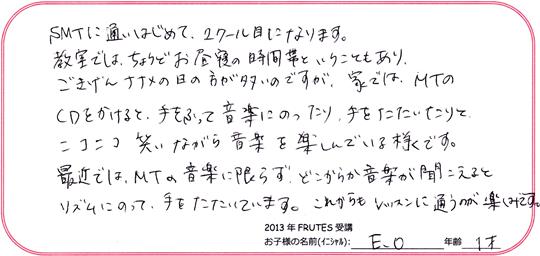 SMTに通いはじめて、2クール目になります。
教室では、ちょうどお昼寝の時間帯ということもあり、
ごきげんナナメの日の方が多いのですが、家では、MTの
CDをかけると、手をふって音楽にのったり、手をたたいたりと、
ニコニコ笑いながら音楽を楽しんでいる様子です。
最近では、MTの音楽に限らず、どこからか音楽が聞こえると
リズムにのって、手をたたいています。これからもレッスンに通うのが楽しみです。
2013年FRUTES受講
お子様の名前(イニシャル): E.O 年齢 1才